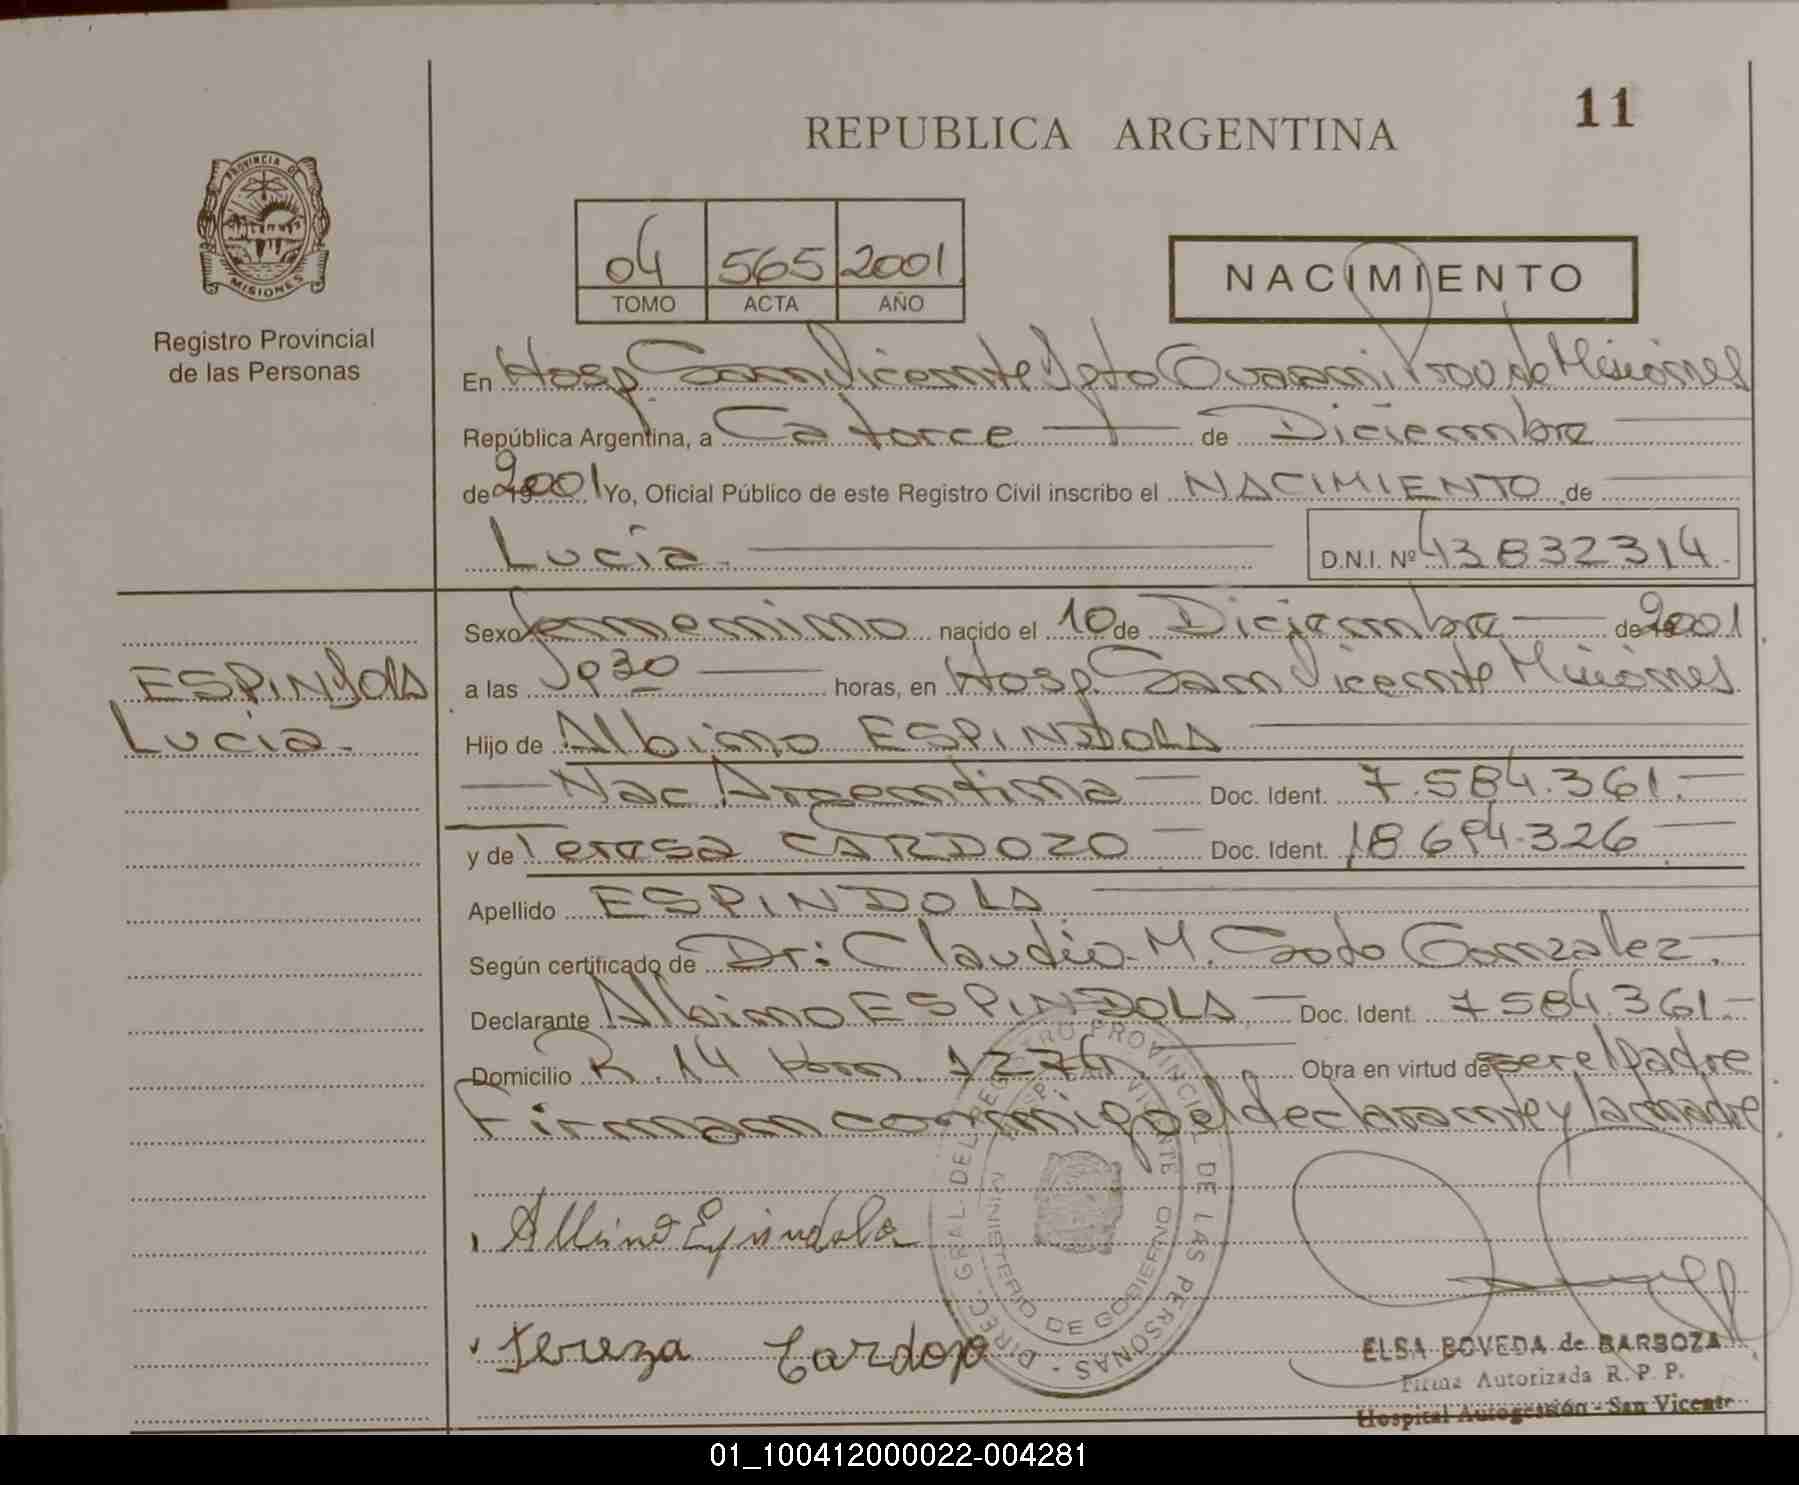 11
REPUBLICA ARGENTINA
PROVINCIA DE
MISIONES
Registro Provincial
de las Personas
04 565 2001
TOMO ACTA AÑO
NACIMIENTO
En Hosp. San Vicente Dpto Guarani Prov de Misiones
República Argentina, a Catorce de Diciembre
de 2001 Yo, Oficial Público de este Registro Civil inscribo el NACIMIENTO de
Lucia
D.N.I. Nº 43832314
Sexo femenino nacido el 10 de Diciembre de 2001
ESPINDOLA
Lucia
a las horas, en Hosp. San Vicente Misiones
Hijo de Albino ESPINDOLA
Nac Argentina Doc. Ident. 7.584.361
y de Teresa CARDOZO Doc. Ident. 18.694.326
Apellido ESPINDOLA
Según certificado de Dr: Claudio M. Soto Gonzalez
Declarante Albino ESPINDOLA Doc. Ident. 7584361
Domicilio R. 14 Km 1274 Obra en virtud de ser el padre
Firman conmigo el declarante y la madre
Albino Espindola
Tereza Cardozo
DIREC. GRAL. DEL REGISTRO PROVINCIAL DE LAS PERSONAS
MINISTERIO DE GOBIERNO
ELSA BOVEDA de BARBOZA
Firma Autorizada R. P. P.
Hospital Autogestión - San Vicente
01_100412000022-004281